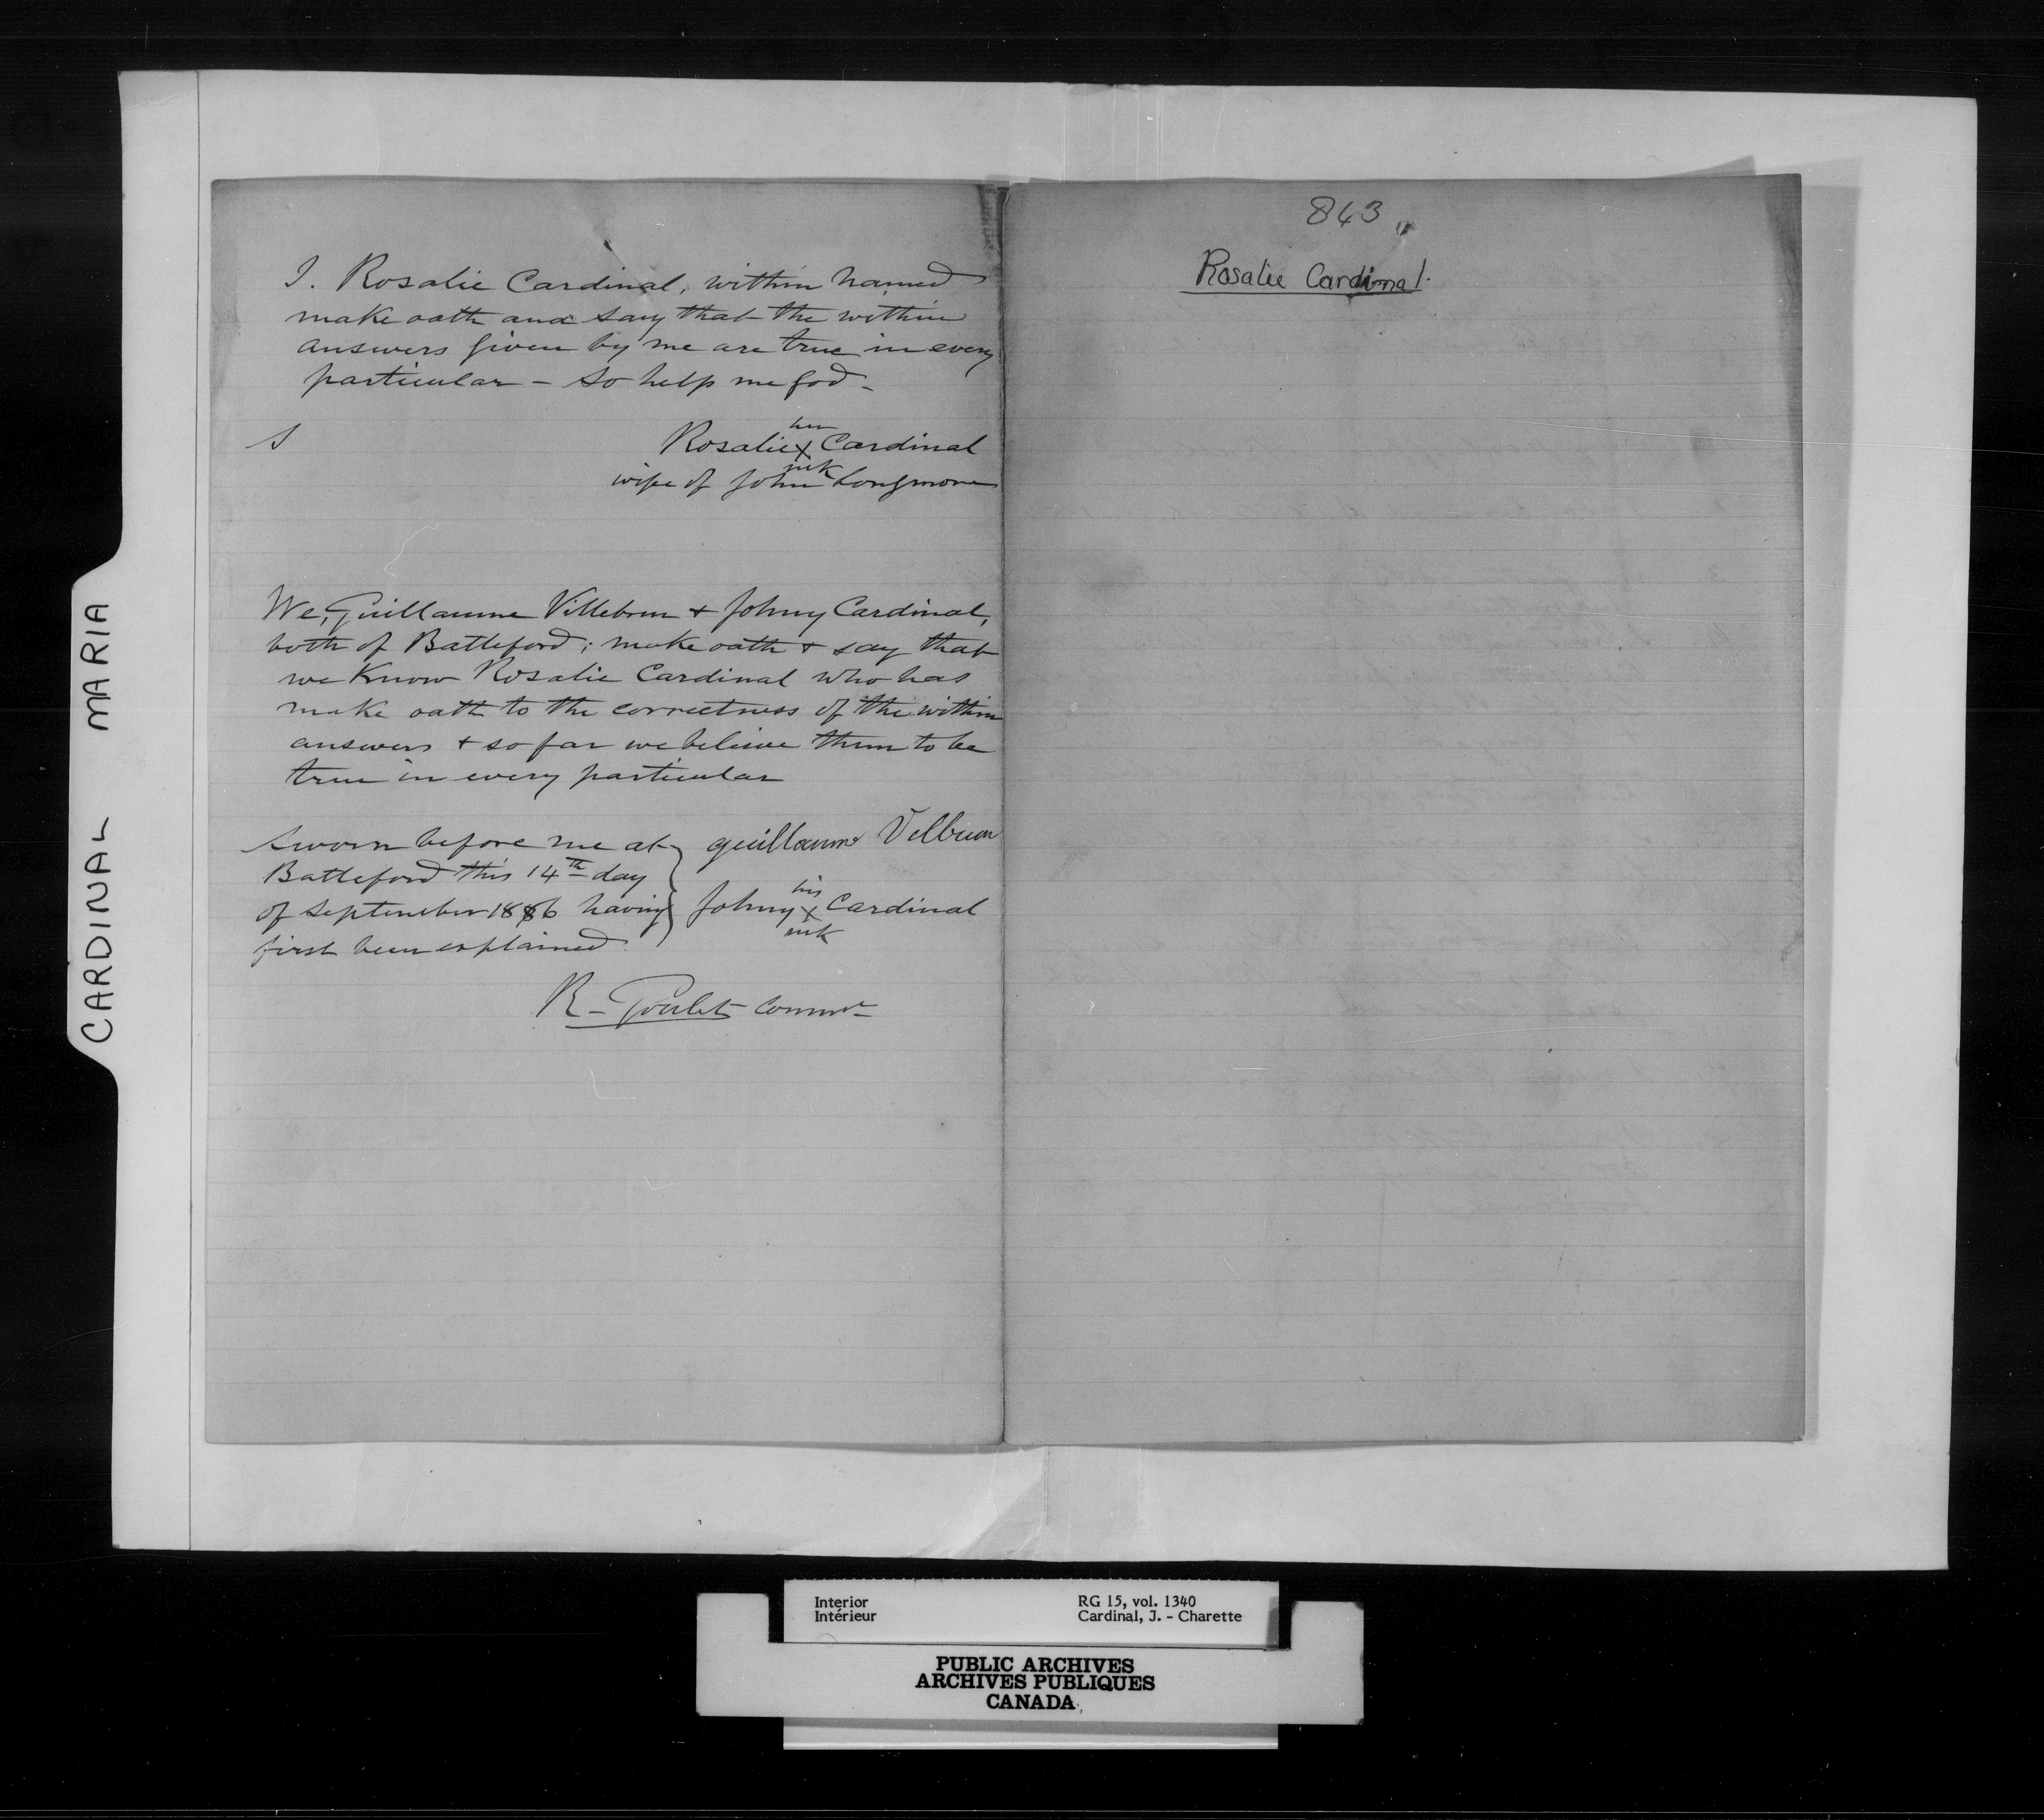 CARDINAL MARIA
I. Rosalie Cardinal, within named
make oath and say that the within
answers given by me are true in every
particular - So help me God -
S
her
Rosalie x Cardinal
mk
wife of John Longmore
We, Guillaume Villebrun + Johny Cardinal,
both of Battleford; make oath + say that
we Know Rosalie Cardinal who has
make oath to the correctness of the within
answers + so far we believe them to be
true in every particular
Sworn before me at
Battleford this 14th day
of September 1886 having
first been explained
guillaume Velbrun
his
Johny x Cardinal
mk
R - Goulet Commr
843
Rosalie Cardinal.
Interior
Intérieur
RG 15, vol. 1340
Cardinal, J. - Charette
PUBLIC ARCHIVES
ARCHIVES PUBLIQUES
CANADA